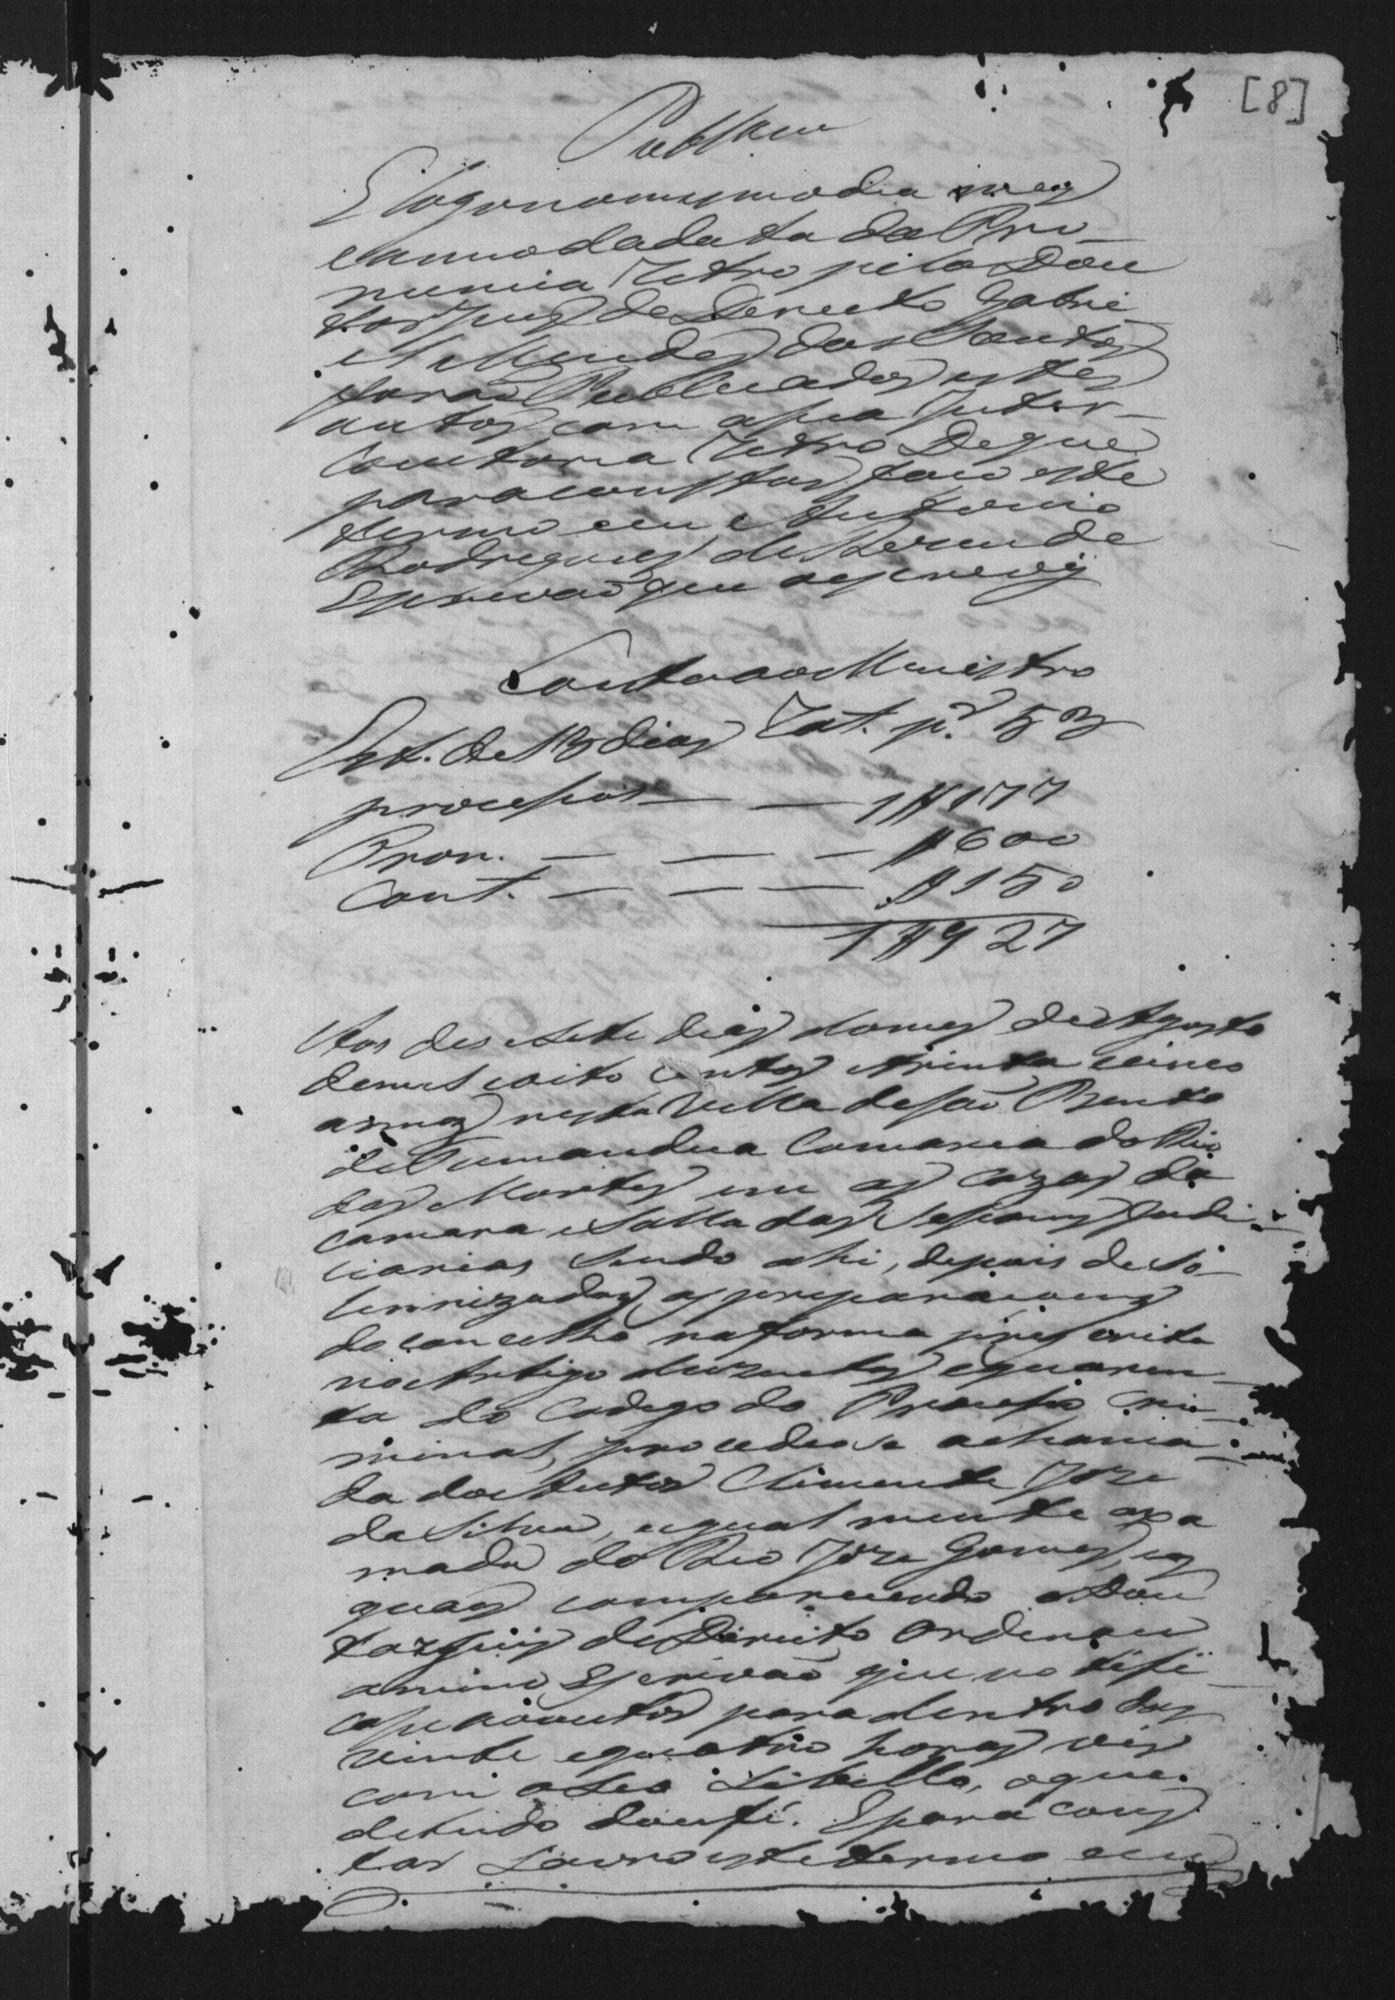 [8]
Publicam
E logo no mesmo dia mez
e anno da data da Pro-
nuncia retro pelo Dou
tor Juiz de Dereito Gabri
el Mendes dos Santos
forão Publicados estes
autos com a sua Inter-
locutoria retro De que
para constar faço este
termo eu Antonio
Rodrigues de Rezende
Escrivão que o escrevy
Conta ao Menistro
Est. de dias
processos — — 1#177
Pron. — — — #600
Cont. — — — #150
1#927
Aos des e sete dias do mez de Agosto
de mil e oito centos e trinta e cinco
annos nesta Villa de São Bento
do Tamandua Comarca do Rio
das Mortes em as cazas da
camara e Salla das Sessoens Judi-
ciarias sendo ahi, depois de so-
lennizadas as preparacoens
do concelho na forma prescrita
no Artigo duzentos e quaren-
ta do Codego do Processo Cri-
minal, procedeo se a chama
da do Autor Clemente Joze
da Silva, e igual mente a xa
mada do Reo Joze Gomes, os
quaes comparecendo o Dou
tor Juiz de Direito Ordenou
a mim Escrivão que notifi-
casse ao autor para dentro das
vinte e quatro horas vir
com o seo Libello, o que
de tudo dou fé. E para cons
tar Lavro este termo eu